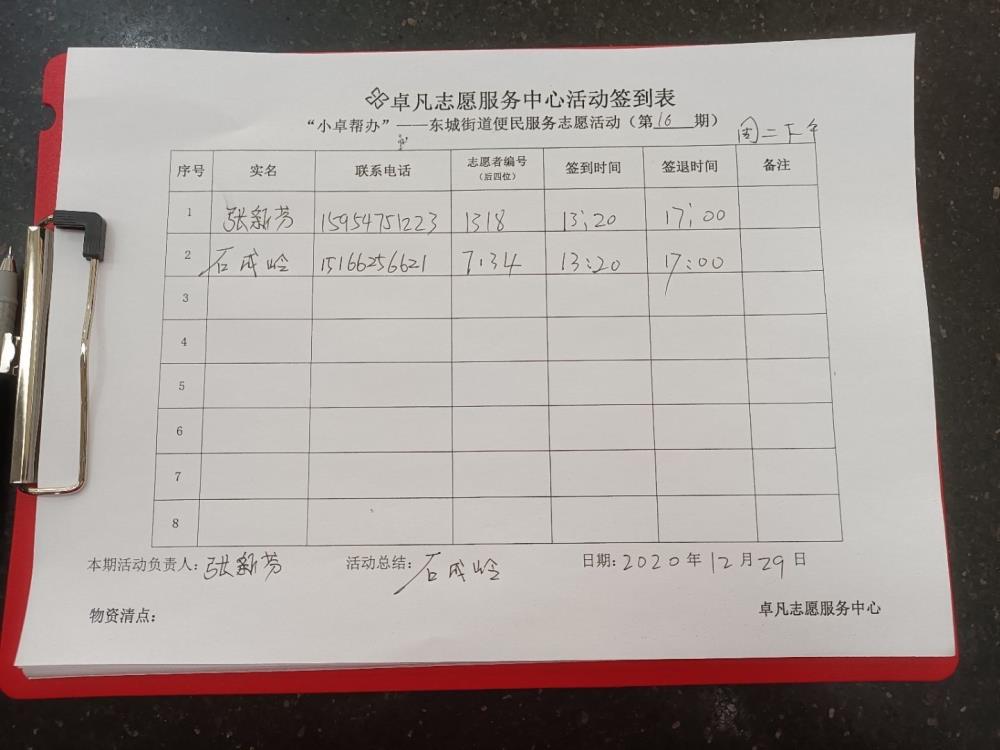 卓凡志愿服务中心活动签到表
“小卓帮办”——东城街道便民服务志愿活动（第16期）
周二下午
序号 实名 联系电话 志愿者编号（后四位） 签到时间 签退时间 备注
1 张新芳 15954751223 1318 13:20 17:00
2 石成岭 15166256621 7134 13:20 17:00
3
4
5
6
7
8
本期活动负责人：张新芳 活动总结：石成岭 日期：2020年12月29日
物资清点： 卓凡志愿服务中心